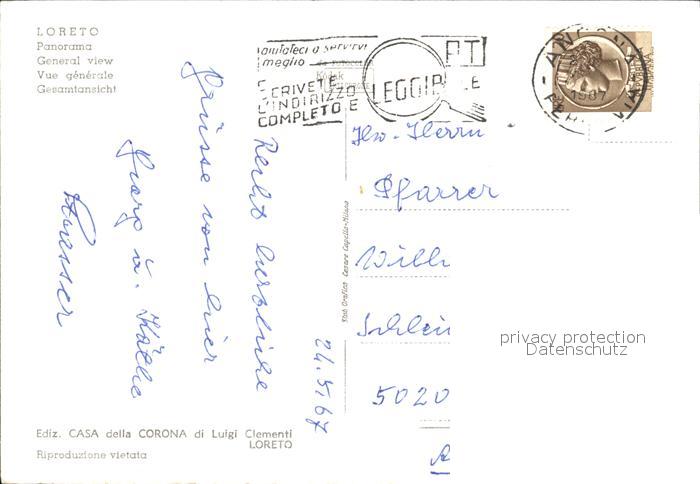 LORETO
Panorama
General view
Vue générale
Gesamtansicht
aiutateci a servirvi
meglio
SCRIVETE
L'INDIRIZZO
COMPLETO E
LEGGIBILE
PT
Kodak
ANCONA
FERROVIA
1967
Recht herzliche
Grüsse von hier
Georg u. Käthe
24.5.67
Herrn
Pfarrer
Willi
Schlei
5020
A
Stab. Grafico Cesare Capello - Milano
privacy protection
Datenschutz
Ediz. CASA della CORONA di Luigi Clementi
LORETO
Riproduzione vietata